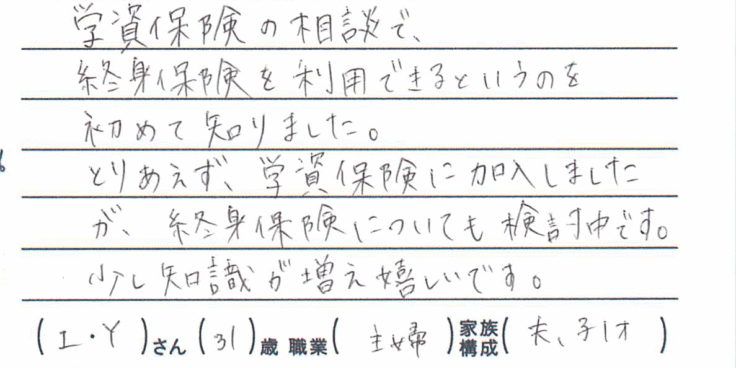 学資保険の相談で、
終身保険を利用できるというのを
初めて知りました。
とりあえず、学資保険に加入しました
が、終身保険についても検討中です。
少し知識が増え嬉しいです。
(I・Y)さん(31)歳 職業(主婦)家族構成(夫、子1才)